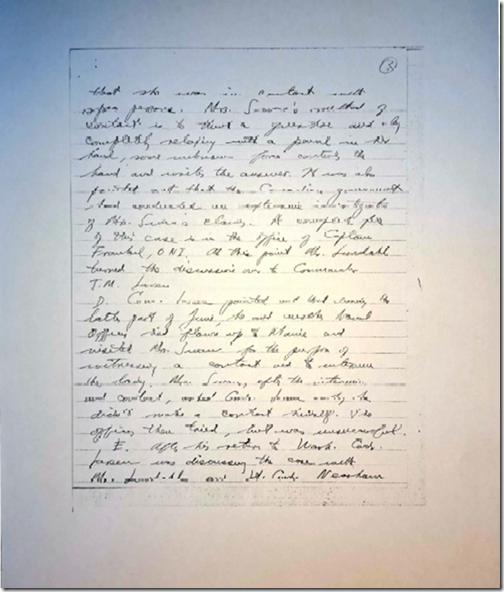 (3)
that she was in contact with
Mrs. Swan's method of
contact is to think a question and by
completely relaxing with a pencil in her
hand, some unknown force controls the
hand and writes the answer. It was also
pointed out that the Canadian government
had conducted an extensive investigation
of Mrs. Swan's claims. A complete file
of this case is in the office of Captain
O.N.I. At this point Mr. Lundahl
turned the discussion over to Commander
T.M. Larsen
D. Cmdr. Larsen pointed out that during the
latter part of June, he and another Naval
officer had flown up to Maine and
visited Mrs. Swan for the purpose of
witnessing a contact and to interview
the lady. Mrs. Swan, after the interview
and contact, asked Cmdr. Larsen why he
didn't make a contact himself. The
officer then tried, but was unsuccessful.
E. After his return to Wash. Cmdr.
Larsen was discussing the case with
Mr. Lundahl and Lt. Cmdr. Neasham